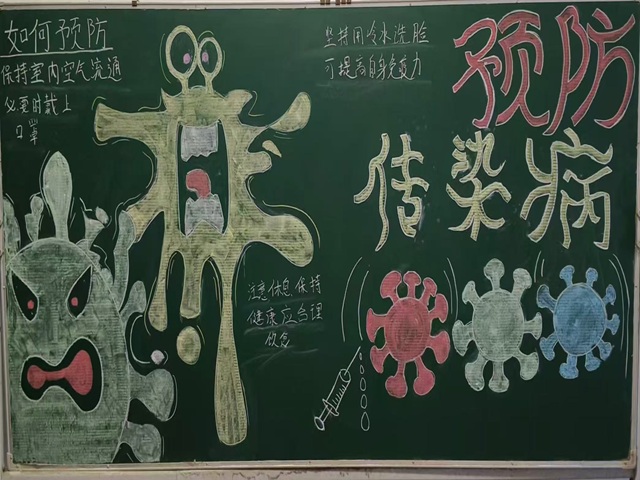 如何预防
保持室内空气流通
必要时戴上
口罩
坚持用冷水洗脸
可提高自身免疫力
预防
传染病
注意休息 保持
健康应合理
饮食